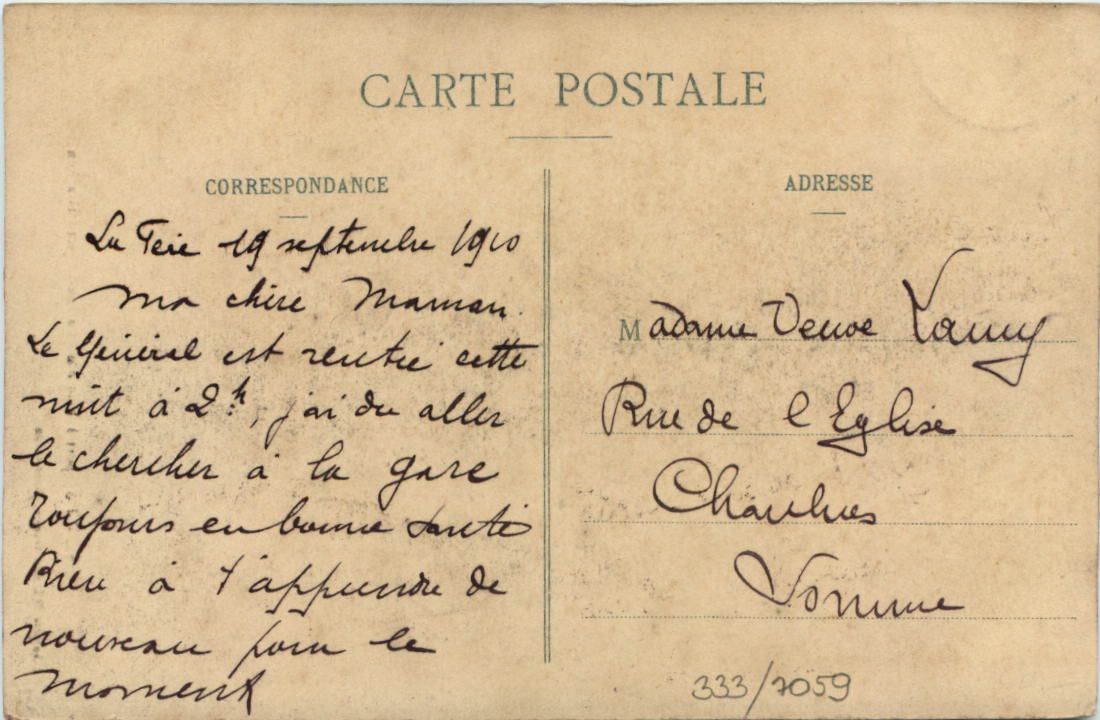 CARTE POSTALE
CORRESPONDANCE
La Fère 19 septembre 1910
Ma chère Maman.
Le Général est rentré cette
nuit à 2h, j'ai du aller
le chercher à la gare
Toujours en bonne santé
Rien à t'apprendre de
nouveau pour le
moment
ADRESSE
Madame Veuve Lamy
Rue de l'Eglise
Chaulnes
Somme
333/7059